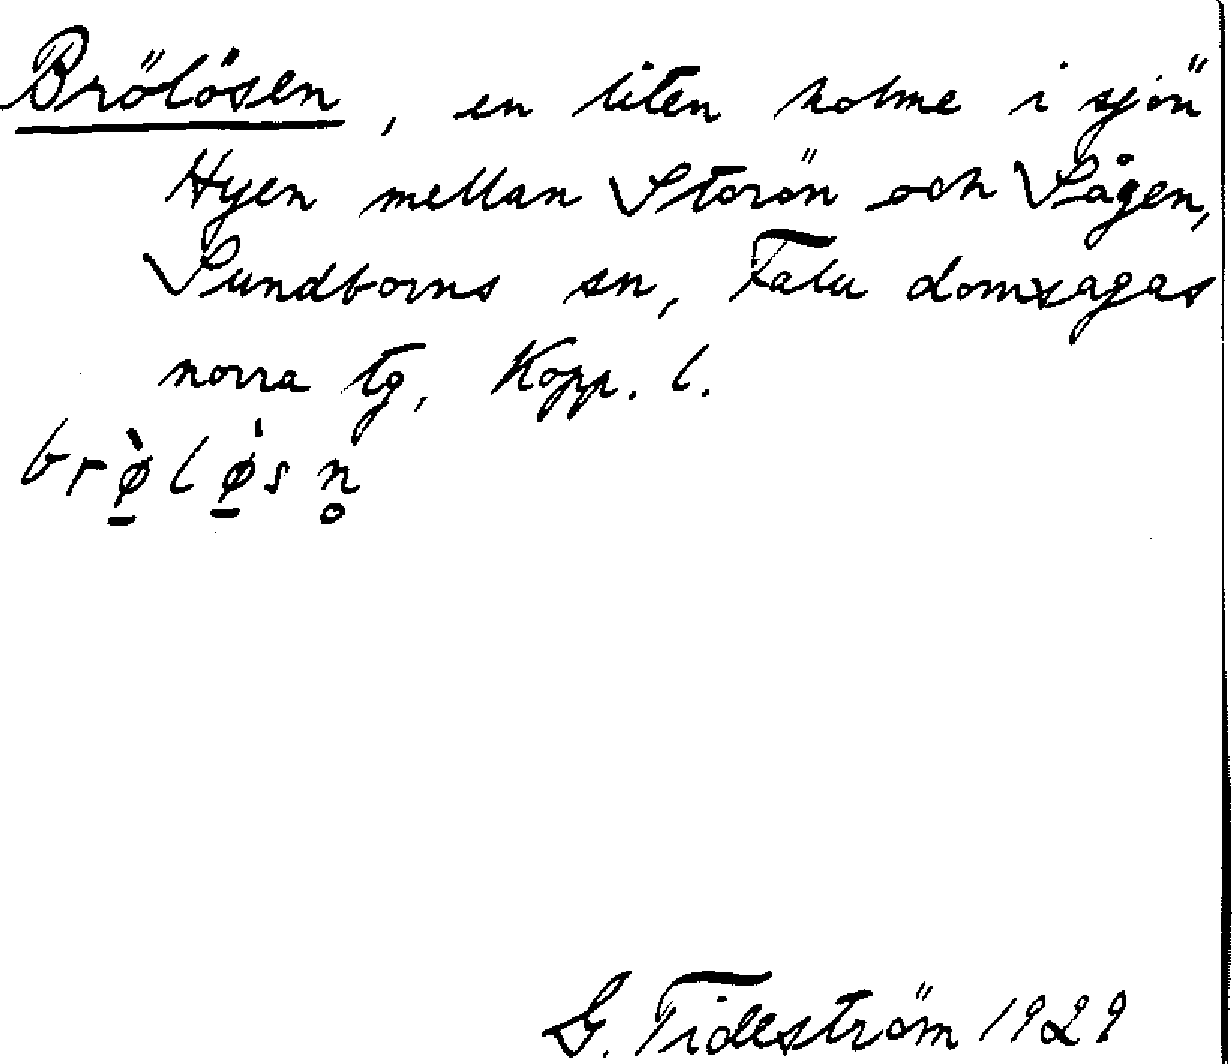 Brölösen, en liten holme i sjön
Hyen mellan Storön och Sågen,
Sundborns sn, Falu domsagas
norra tg, Kopp. l.
brø̠̀lǿ̠sn̥
G. Tideström 1929